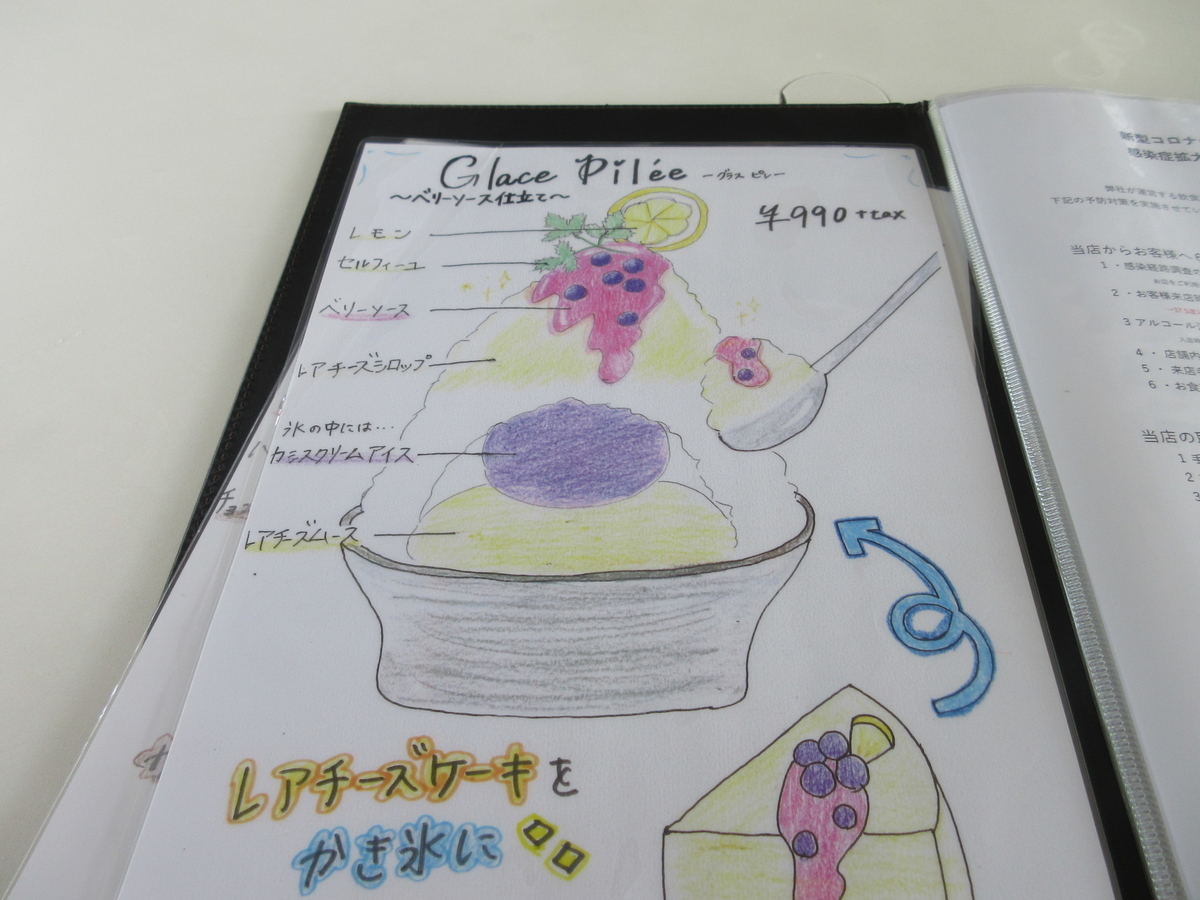 Glace Pilée －グラス ピレー
～ベリーソース仕立て～
¥990+tax
レモン
セルフィーユ
ベリーソース
レアチーズシロップ
氷の中には…
カシスクリームアイス
レアチーズムース
レアチーズケーキを
かき氷に
新型コロナ
感染症拡大
弊社が運営する飲食
下記の予防対策を実施させて
当店からお客様へ
1・感染経路調査の
2・お客様来店
3 アルコール
4・店舗内
5・来店
6・お食
当店の
1 手
2
3